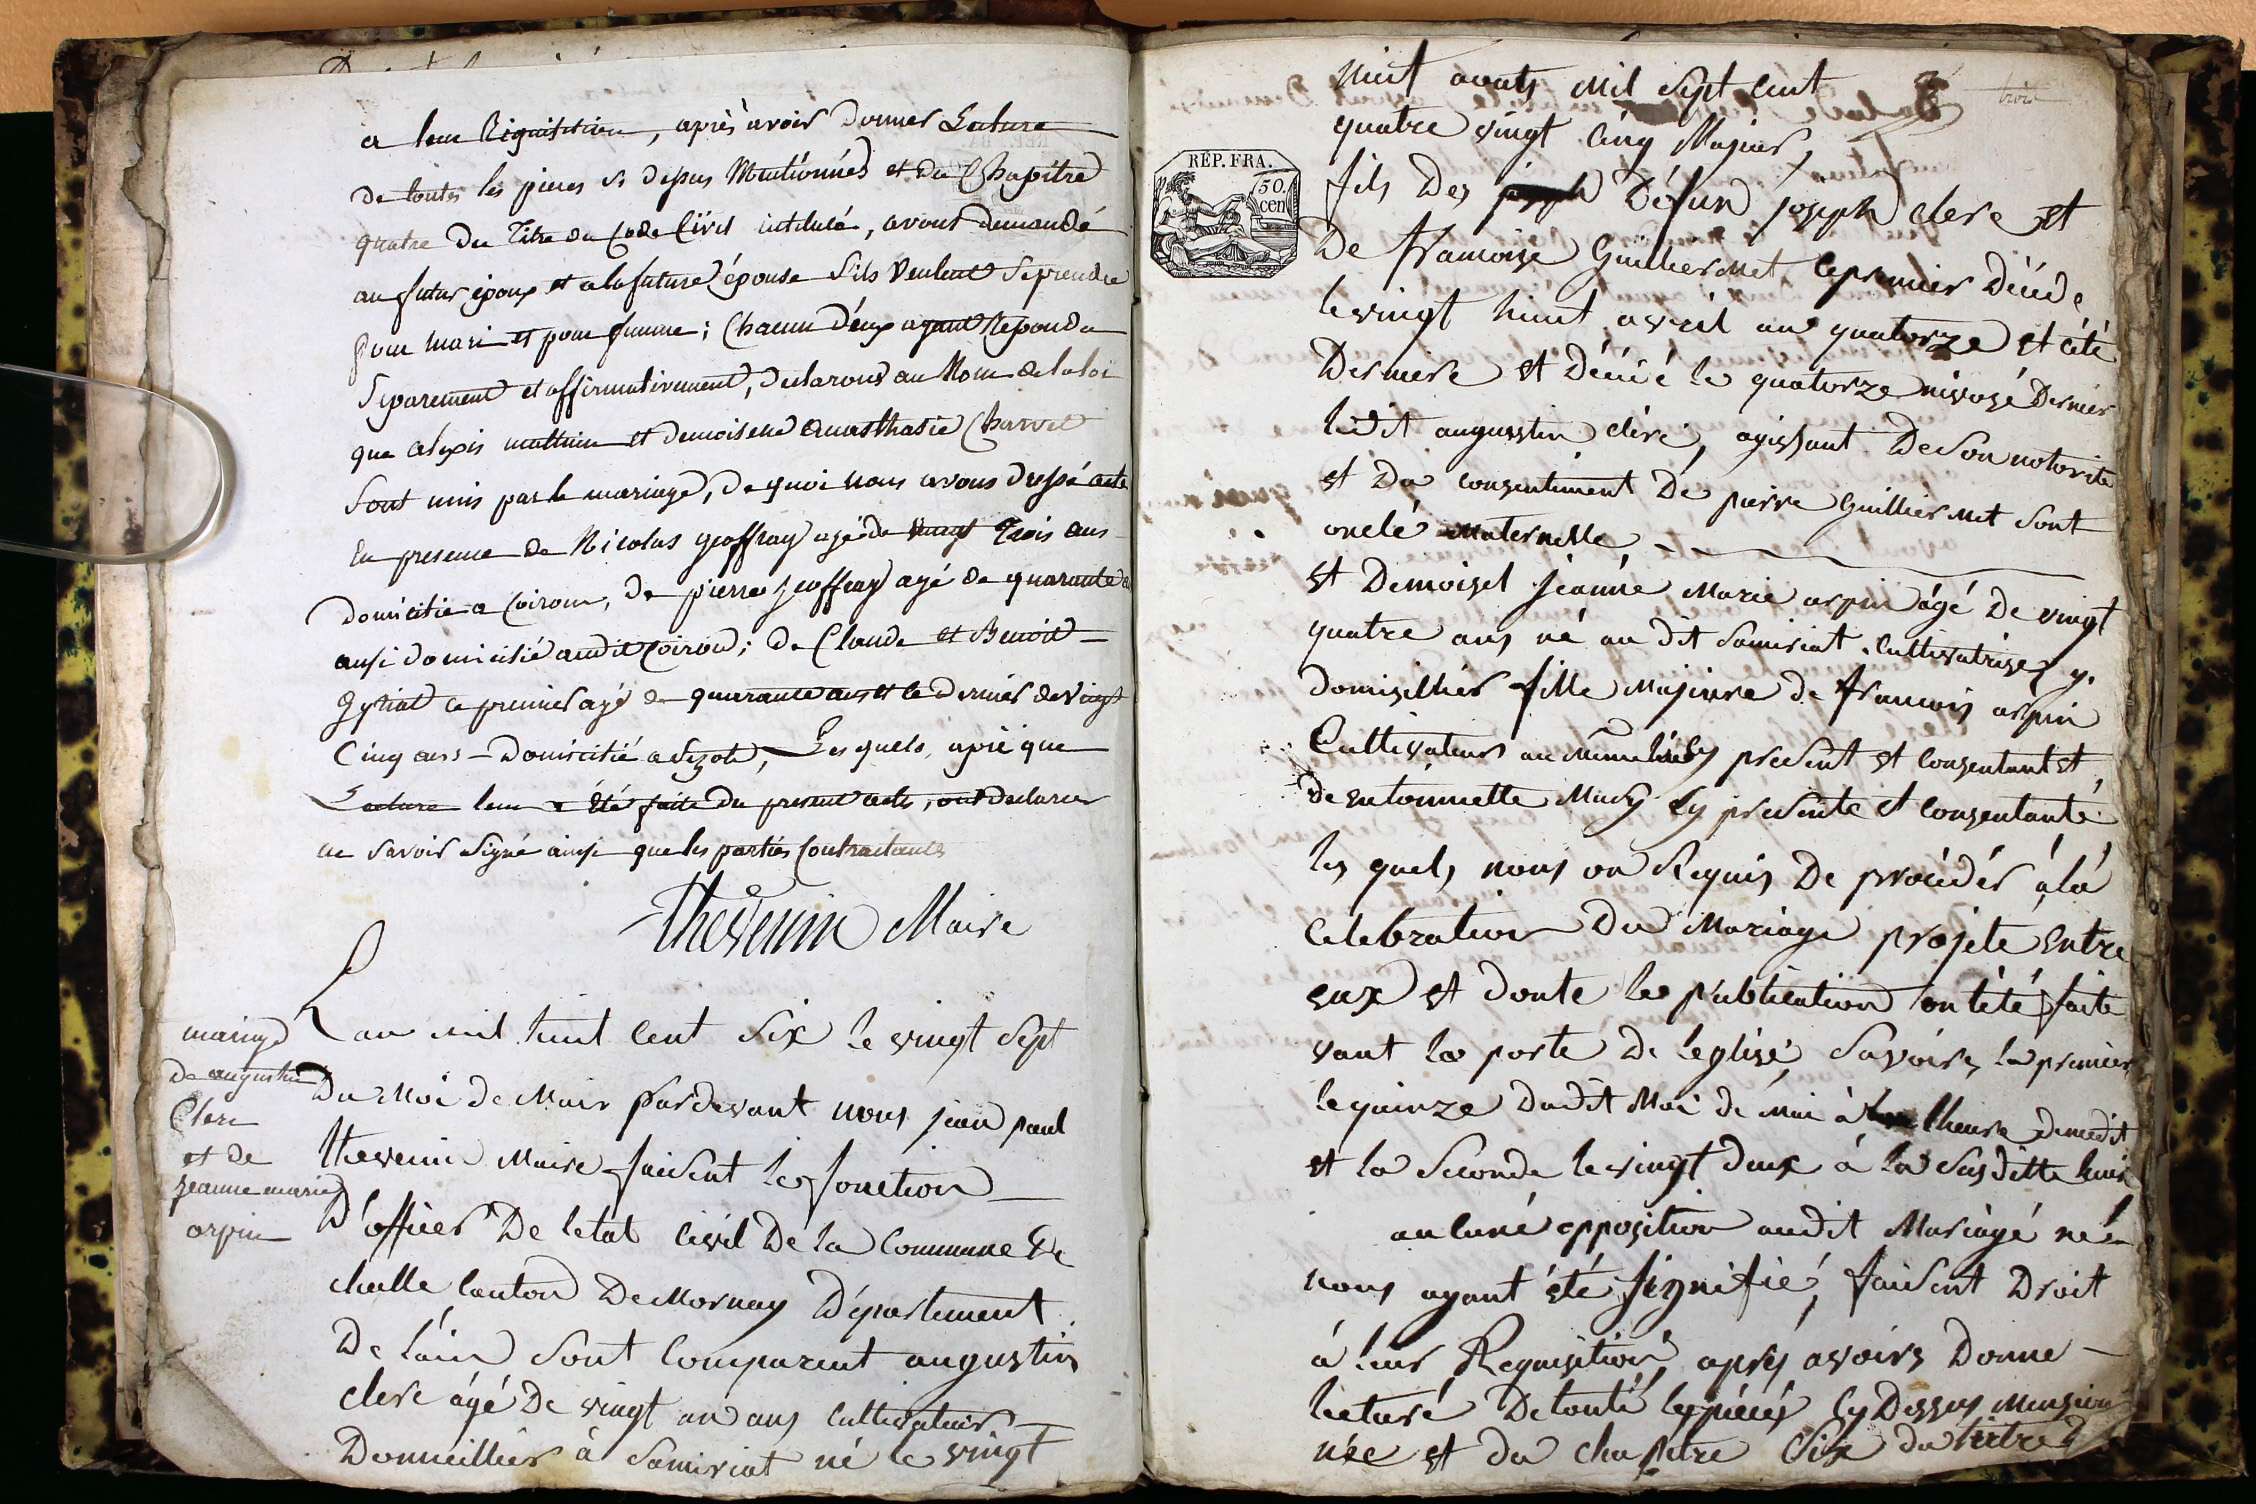 a leur Requisition, après avoir donner Lecture
de toutes les pieces ci dessus Mentionnés et du Chapitre
quatre du Titre du Code Civil intitulé, avons demandé
au futur époux et a la future épouse s'ils veulent se prendre
pour mari et pour femme; Chacun d'eux ayant Repondu
séparement et affirmativement, declarons au Nom de la loi
que alexis mathieu et demoiselle anasthasie Charvet
sont unis par le mariage, de quoi nous avons dressé acte
En presence de Nicolas geoffray agé de vingt Trois ans
domicilie a Coiron, de pierre geoffray agé de quarante
ausi domicilié audit Coiron; de Claude et Benoit
gyriat ce premier agé de quarante ans et le dernier de vingt
Cinq ans - Domicilié a Sizot, Lesquels, aprè que
Lecture leur a été faite du present acte, ont declarer
ne savoir signé ainsi que les parties Contractantes
thevenin Maire
mariage
de augustin
Clerc
et de
jeanne marie
arpin
Lan mil huit cent six le vingt sept
Du Moi de Mair pardevant nous jean paul
thevenin Maire faisent le fonction
D'officer De letat civil De la Commune De
challe Canton De Mornay Département
De láin sont comparent augustin
clerc ágé De vingt un ans Cultivateur
Domicillier à Samiriat né le vingt
trois
REP. FRA.
50.
cen
huit aouts mil sept cent
quatre vingt cinq Majeur,
fils Des Défun joseph clerc et
De francoise Guilliermet le premier Décéde
le vingt huit avril an quatorze et cété
Derniere et Décéié le quatorze nivosé Dernier
le dit augusstin cléri, agissant De son notorité
et Du consentiment De pierre Guilliermet sont
onclé Maternelle,
et Demoisel jeanne Marie arpin ágé De vingt
quatre ans né au dit Samiriat cultivatrise y
Domisillier fille Majeure de francois arpin
Cultivateur au même lieu present et consentant et
de entoinnette Mury cy presente et consentante
les quels nous on Requis De procéder á la
Celebration Du Mariage projeté Entre
eux et donte les publication on tété faite
vant la porte De leglise, Savoire, la premier
le quinze dudit Moi de mai à lheure de medit
et la Seconde le vingt deux á la Susditte heure
aucuné opposition audit Mariagé né
nous ayant été signifié, faisent Droit
á leur Requisition aprés avoire Donne
lecturé De touté les piécés cy Dessus mension
née et du chapitre Six du titre